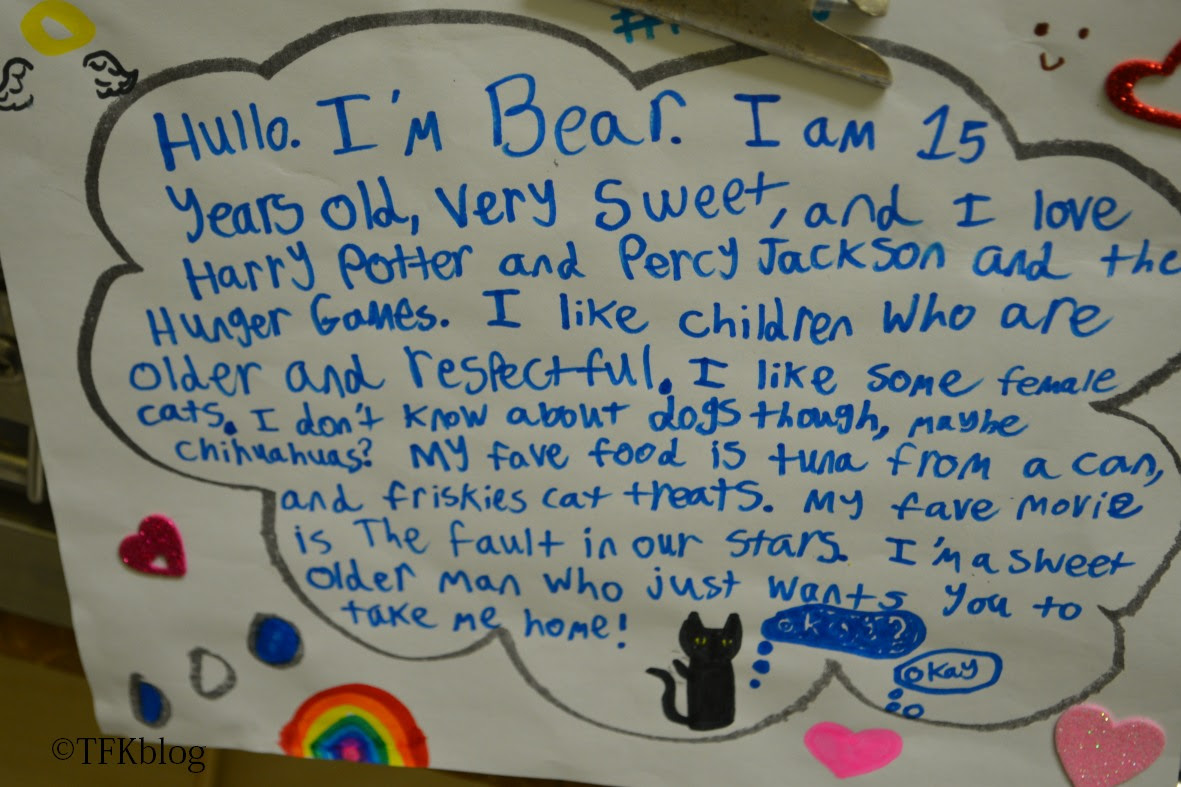 Hullo. I'm Bear. I am 15
years old, very sweet, and I love
Harry Potter and Percy Jackson and the
Hunger Games. I like children who are
older and respectful. I like some female
cats. I don't know about dogs though, maybe
chihuahuas? My fave food is tuna from a can,
and friskies cat treats. My fave movie
is The fault in our stars. I'm a sweet
older man who just wants you to
take me home!
okay?
okay
©TFKblog